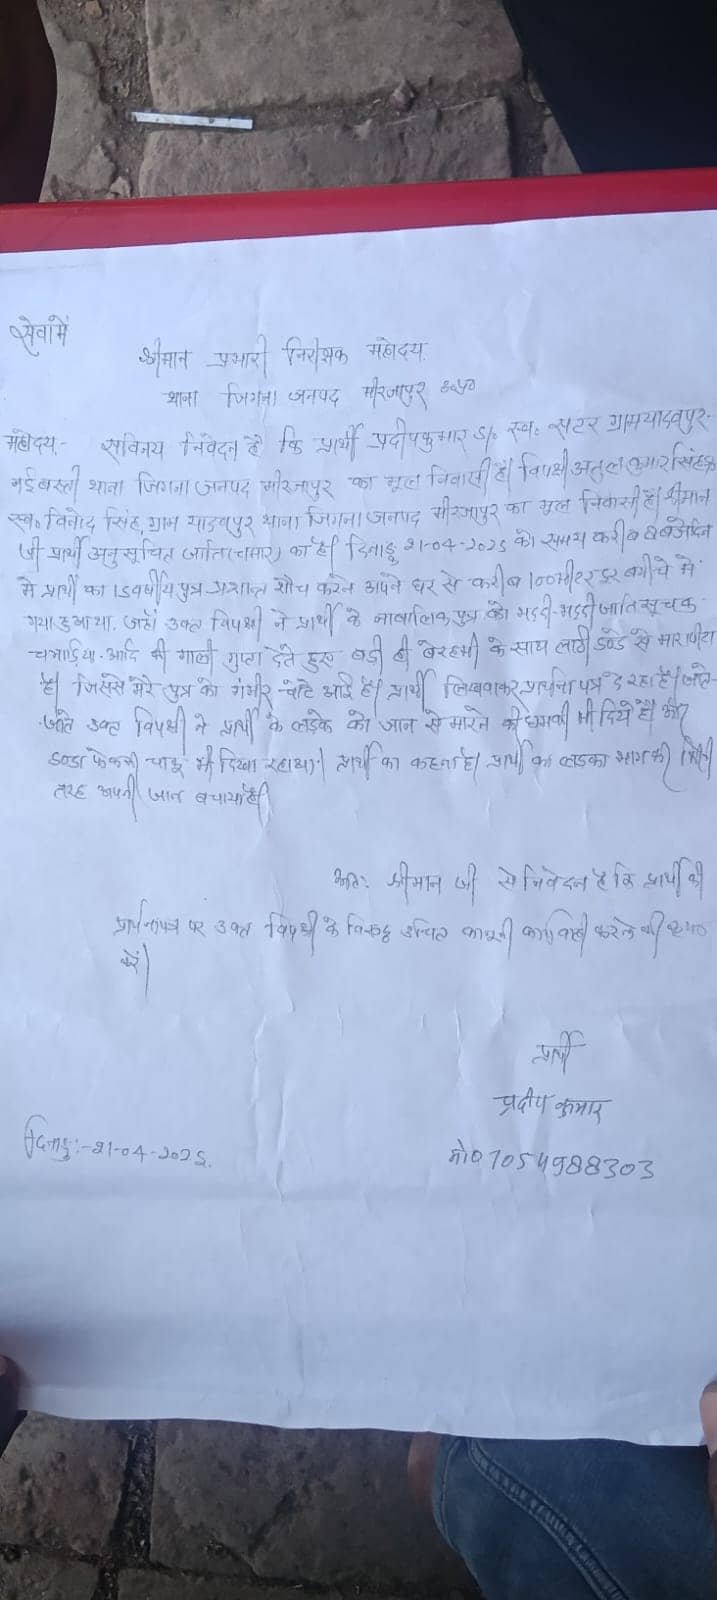 सेवामें
श्रीमान प्रभारी निरीक्षक महोदय
थाना जिगना जनपद मीरजापुर उ०प्र०
महोदय,- सविनय निवेदन है कि प्रार्थी प्रदीपकुमार S/o स्व० सटर ग्राम यादवपुर-
नई बस्ती थाना जिगना जनपद मीरजापुर का मूल निवासी है। विपक्षी अतुल कुमार सिंह
स्व० विनोद सिंह, ग्राम यादवपुर थाना जिगना जनपद मीरजापुर का मूल निवासी है। श्रीमान
जी प्रार्थी अनुसूचित जाति (चमार) का है। दिनाङ्क 21-04-2025 को समय करीब 8 बजे दिन
में प्रार्थी का 15 वर्षीय पुत्र प्रशान्त शौच करने अपने घर से करीब 100 मीटर दूर बगीचे में
गया हुआ था, जहाँ उक्त विपक्षी ने प्रार्थी के नाबालिक पुत्र को भद्दी-भद्दी जाति सूचक
चमाड़िया आदि की गाली गुप्ता देते हुए बड़ी ही बेरहमी के साथ लाठी डण्डे से मारा पीटा
है। जिससे मेरे पुत्र को गंभीर चोटें आई है। प्रार्थी लिखवाकर प्रार्थना पत्र दे रहा है। जाते-
जाते उक्त विपक्षी ने प्रार्थी के लड़के को जान से मारने की धमकी भी दिये हैं। और
डण्डा फेककर चाकू भी दिखा रहा था। प्रार्थी का कहना है। प्रार्थी का लड़का भागकर किसी
तरह अपनी जान बचाया है।
अतः श्रीमान जी से निवेदन है कि प्रार्थी की
प्रार्थनापत्र पर उक्त विपक्षी के विरुद्ध उचित कानूनी कार्यवाही करने की कृपा
करें।
प्रार्थी
प्रदीप कुमार
मो० 7054988303
दिनाङ्क:-21-04-2025